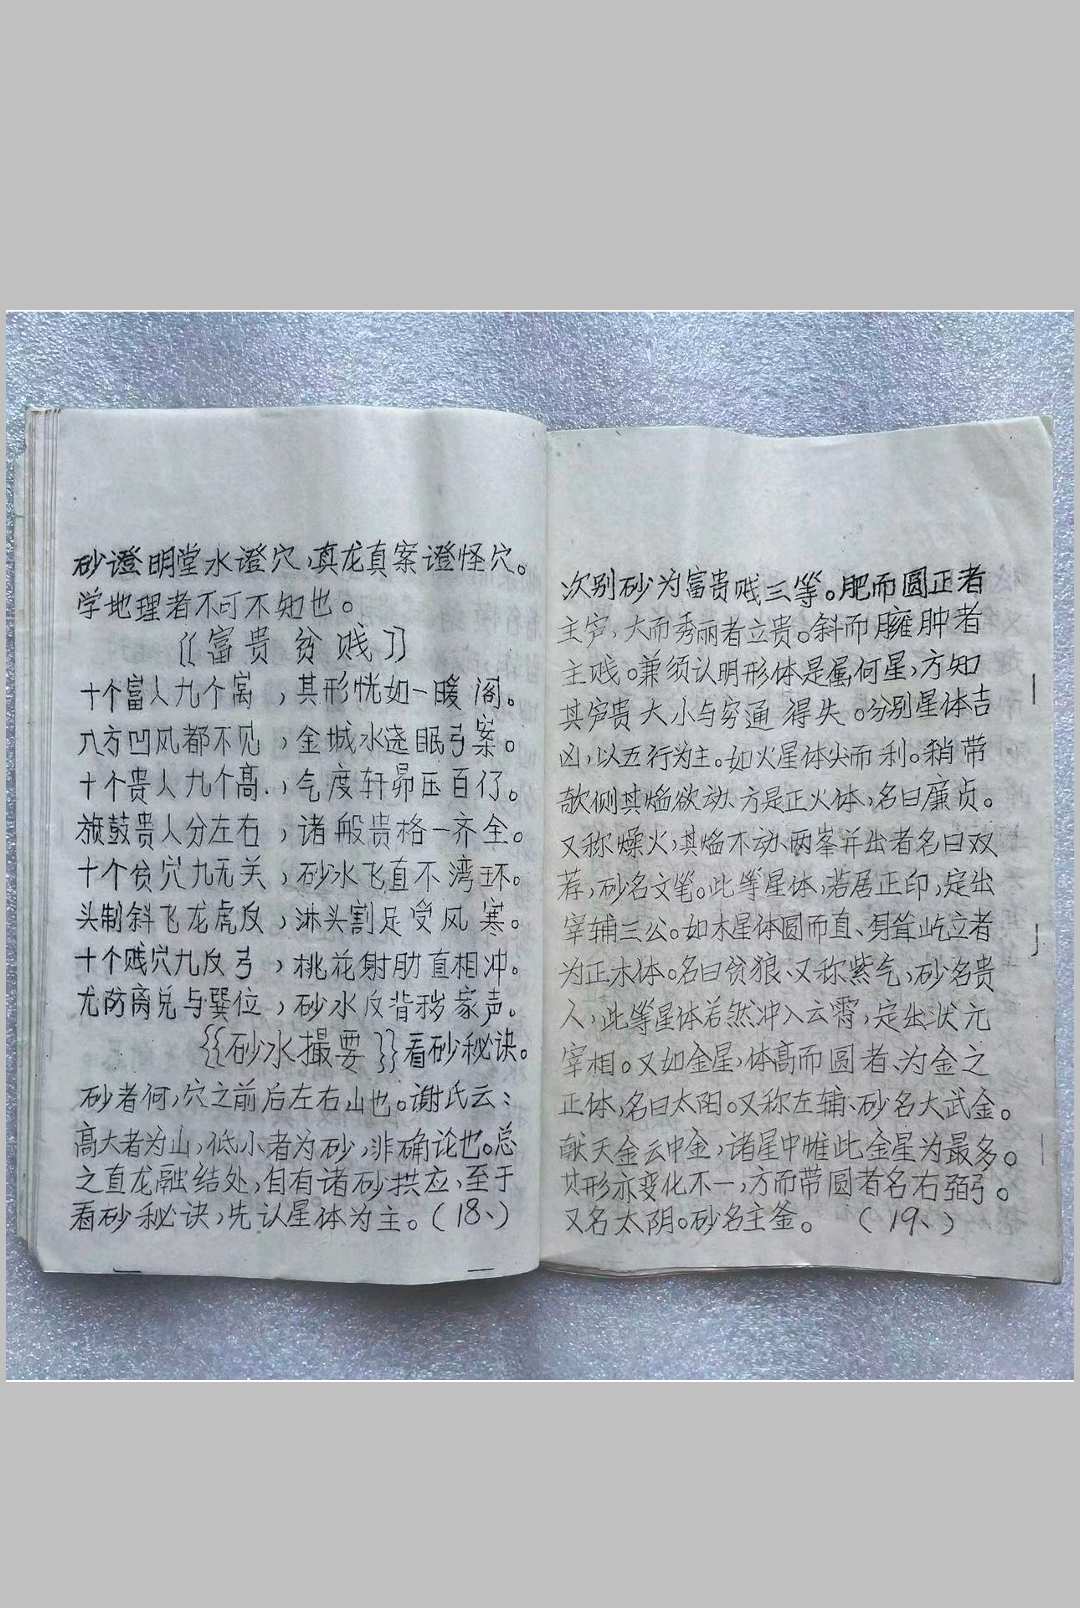 砂澄明堂水澄穴，真龙真案澄怪穴。
学地理者不可不知也。
〖富贵贫贱〗
十个富人九个窝，其形恍如一暖阁。
八方凹风都不见，金城水迯眠弓案。
十个贵人九个高，气度轩昂压百仔。
旗鼓贵人分左右，诸般贵格一齐全。
十个贫穴九无关，砂水飞直不湾环。
头制斜飞龙虎反，淋头割足受风寒。
十个贱穴九反弓，桃花射肋直相冲。
尤防离兑与巽位，砂水反背秽家声。
{{砂水撮要}}看砂秘诀。
砂者何，穴之前后左右山也。谢氏云：
高大者为山，低小者为砂，非确论也。总
之直龙融结处，自有诸砂拱应，至于
看砂秘诀，先认星体为主。（18、）
次别砂为富贵贱三等。肥而圆正者
主富，大而秀丽者立贵。斜而臃肿者
主贱。兼须认明形体是属何星，方知
其富贵大小与穷通得失。分别星体吉
凶，以五行为主。如火星体尖而利。稍带
欹侧其焰欲动、方是正火体，名曰廉贞。
又称燥火，其焰不动、两峯并出者名曰双
荐，砂名文笔。此等星体，若居正印，定出
宰辅三公。如木星体圆而直、身耸屹立者
为正木体。名曰贫狼、又称紫气，砂名贵
人，此等星体若然冲入云霄，定出状元
宰相。又如金星，体高而圆者、为金之
正体，名曰太阳。又称左辅、砂名大武金。
献天金云中金，诸星中惟此金星为最多。
其形亦变化不一，方而带圆者名右弼。
又名太阴。砂名主釜。（19、）